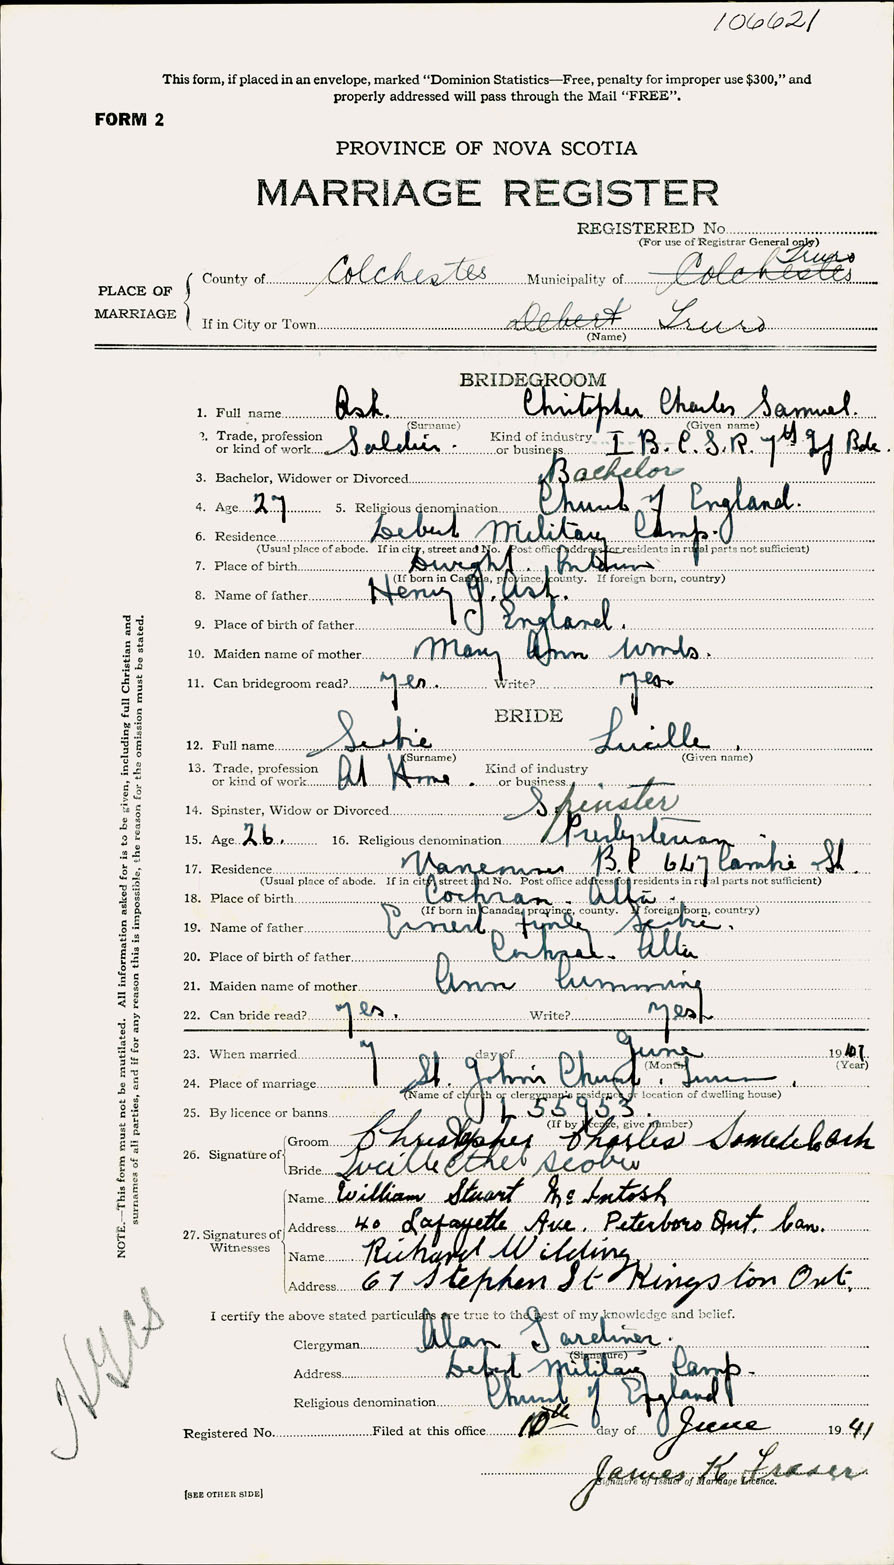 106621
This form, if placed in an envelope, marked “Dominion Statistics—Free, penalty for improper use $300,” and
properly addressed will pass through the Mail “FREE”.
FORM 2
PROVINCE OF NOVA SCOTIA
MARRIAGE REGISTER
REGISTERED No
(For use of Registrar General only)
Truro
PLACE OF MARRIAGE County of Colchester Municipality of Colchester
If in City or Town Debert Truro
(Name)
BRIDEGROOM
1. Full name Ash. Chritopher Charles Samuel.
(Surname) (Given name)
2. Trade, profession or kind of work Soldier. Kind of industry or business I B.C.S.R. 7th Inf Bde.
3. Bachelor, Widower or Divorced Bachelor
4. Age 27 5. Religious denomination Church of England.
6. Residence Debert Military Camp.
(Usual place of abode. If in city, street and No. Post office address for residents in rural parts not sufficient)
7. Place of birth Dwight.
(If born in Canada, province, county. If foreign born, country)
8. Name of father Henry J. Ash.
9. Place of birth of father England.
10. Maiden name of mother Mary Ann Woods.
11. Can bridegroom read? yes. Write? yes.
BRIDE
12. Full name Scobie Lucille.
(Surname) (Given name)
13. Trade, profession or kind of work At Home. Kind of industry or business
14. Spinster, Widow or Divorced Spinster
15. Age 26. 16. Religious denomination Presbyterian.
17. Residence Vancouver B.C 647 Cambie St.
(Usual place of abode. If in city street and No. Post office address for residents in rural parts not sufficient)
18. Place of birth Cochran. Alta.
(If born in Canada, province, county. If foreign born, country)
19. Name of father Ernest Finley Scobie.
20. Place of birth of father Alta
21. Maiden name of mother Ann Cumming
22. Can bride read? yes. Write? yes
23. When married 7 day of June 19
(Month) (Year)
24. Place of marriage St. John's Church, Truro.
(Name of church or clergyman's residence or location of dwelling house)
25. By licence or banns L 55953.
(If by licence, give number)
26. Signature of Groom Christopher Charles Samuel Ash
Bride Lucille Ethel Scobie
27. Signatures of Witnesses Name William Stuart McIntosh
Address 40 Lafayette Ave. Peterboro Ont. Can.
Name Richard Wilding
Address 67 Stephen St Kingston Ont.
I certify the above stated particulars are true to the best of my knowledge and belief.
Clergyman Alan Gardiner.
(Signature)
Address Debert Military Camp.
Religious denomination Church of England
Registered No. Filed at this office 10th day of June 1941
James K Fraser
Signature of Issuer of Marriage Licence.
[SEE OTHER SIDE]
NOTE.—This form must not be mutilated. All information asked for is to be given, including full Christian and
surnames of all parties, and if for any reason this is impossible, the reason for the omission must be stated.